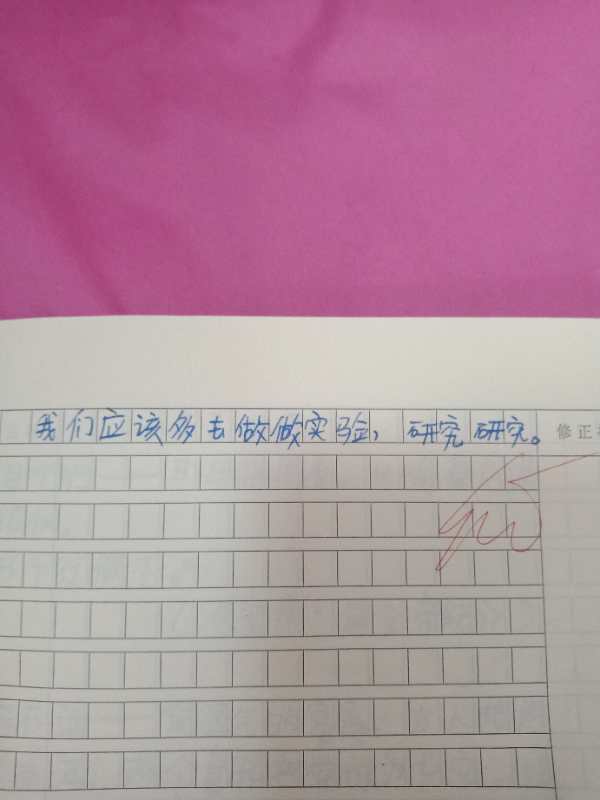 我们应该多去做做实验，研究研究。
修正